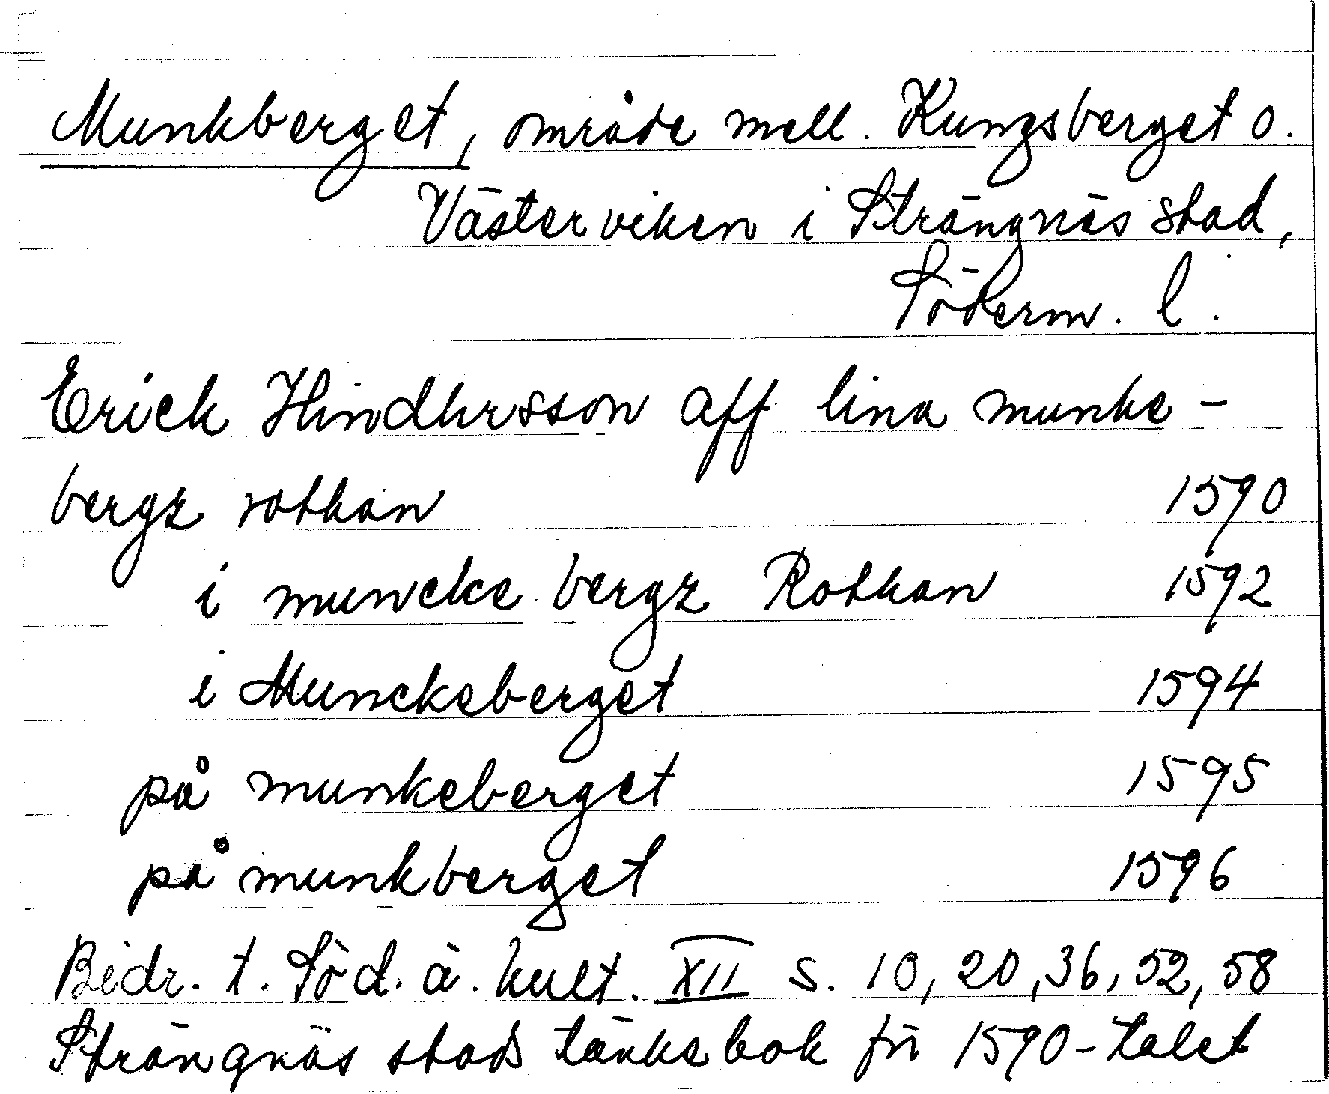 Munkberget, område mell. Kungsberget o.
Västerviken i Strängnäs stad,
Söderm. l.
Erick Hindhrsson aff lina munke-
bergz rothan 1590
i muncke bergz Rothan 1592
i Munckeberget 1594
på munkeberget 1595
på munkberget 1596
Bidr. t. Söd. ä. kult. XII s. 10, 20, 36, 52, 58
Strängnäs stads tänkebok fr 1590-talet